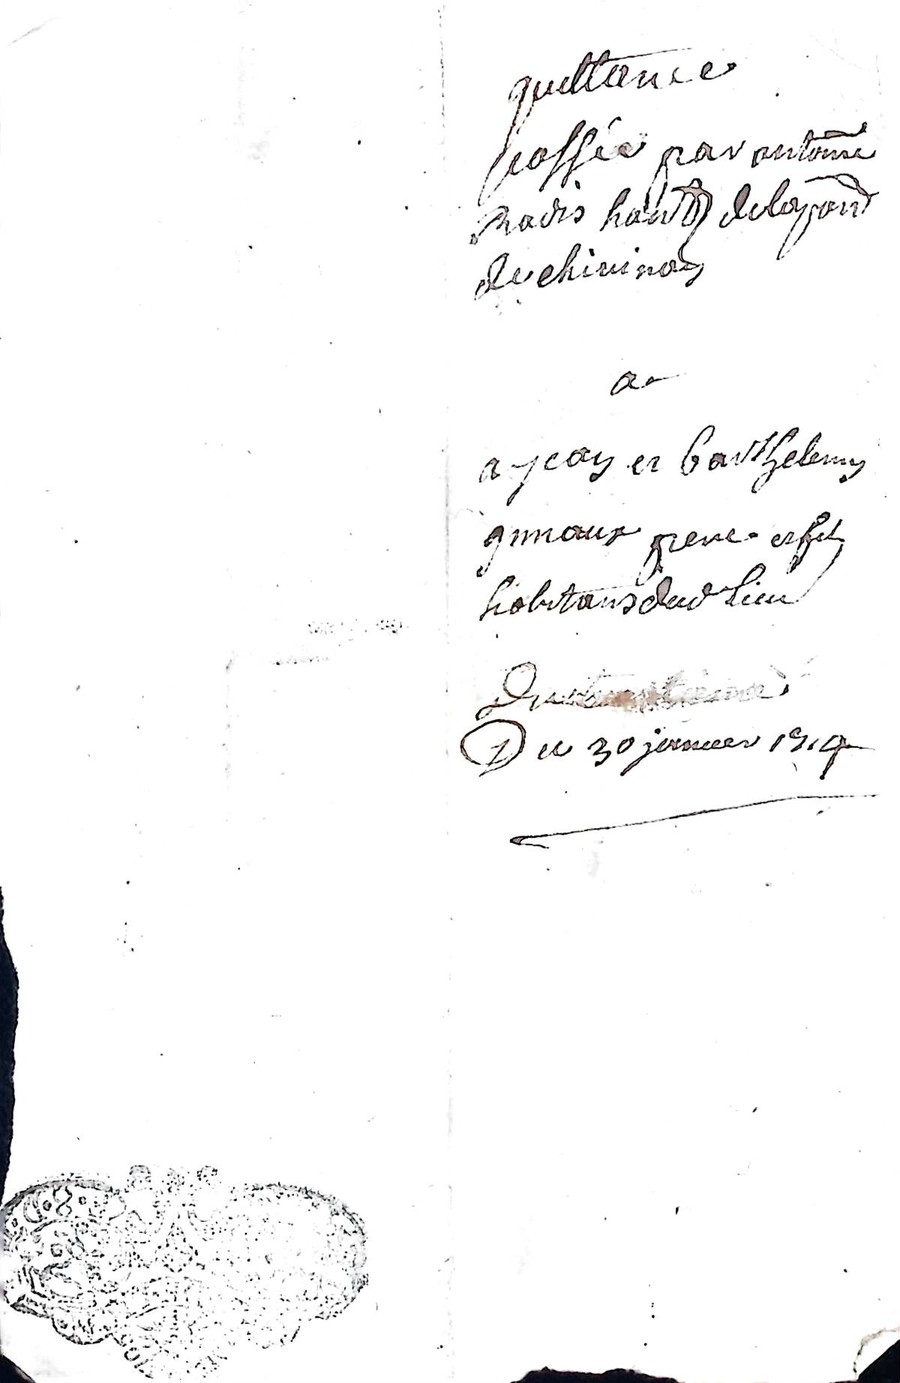 quittance
passée par antoine
nadis habt de la paroi
de chirinac
a
a jean et barthelemy
gimaux pere et fil
habitans dud lieu
Du
Du 30 janvier 1914